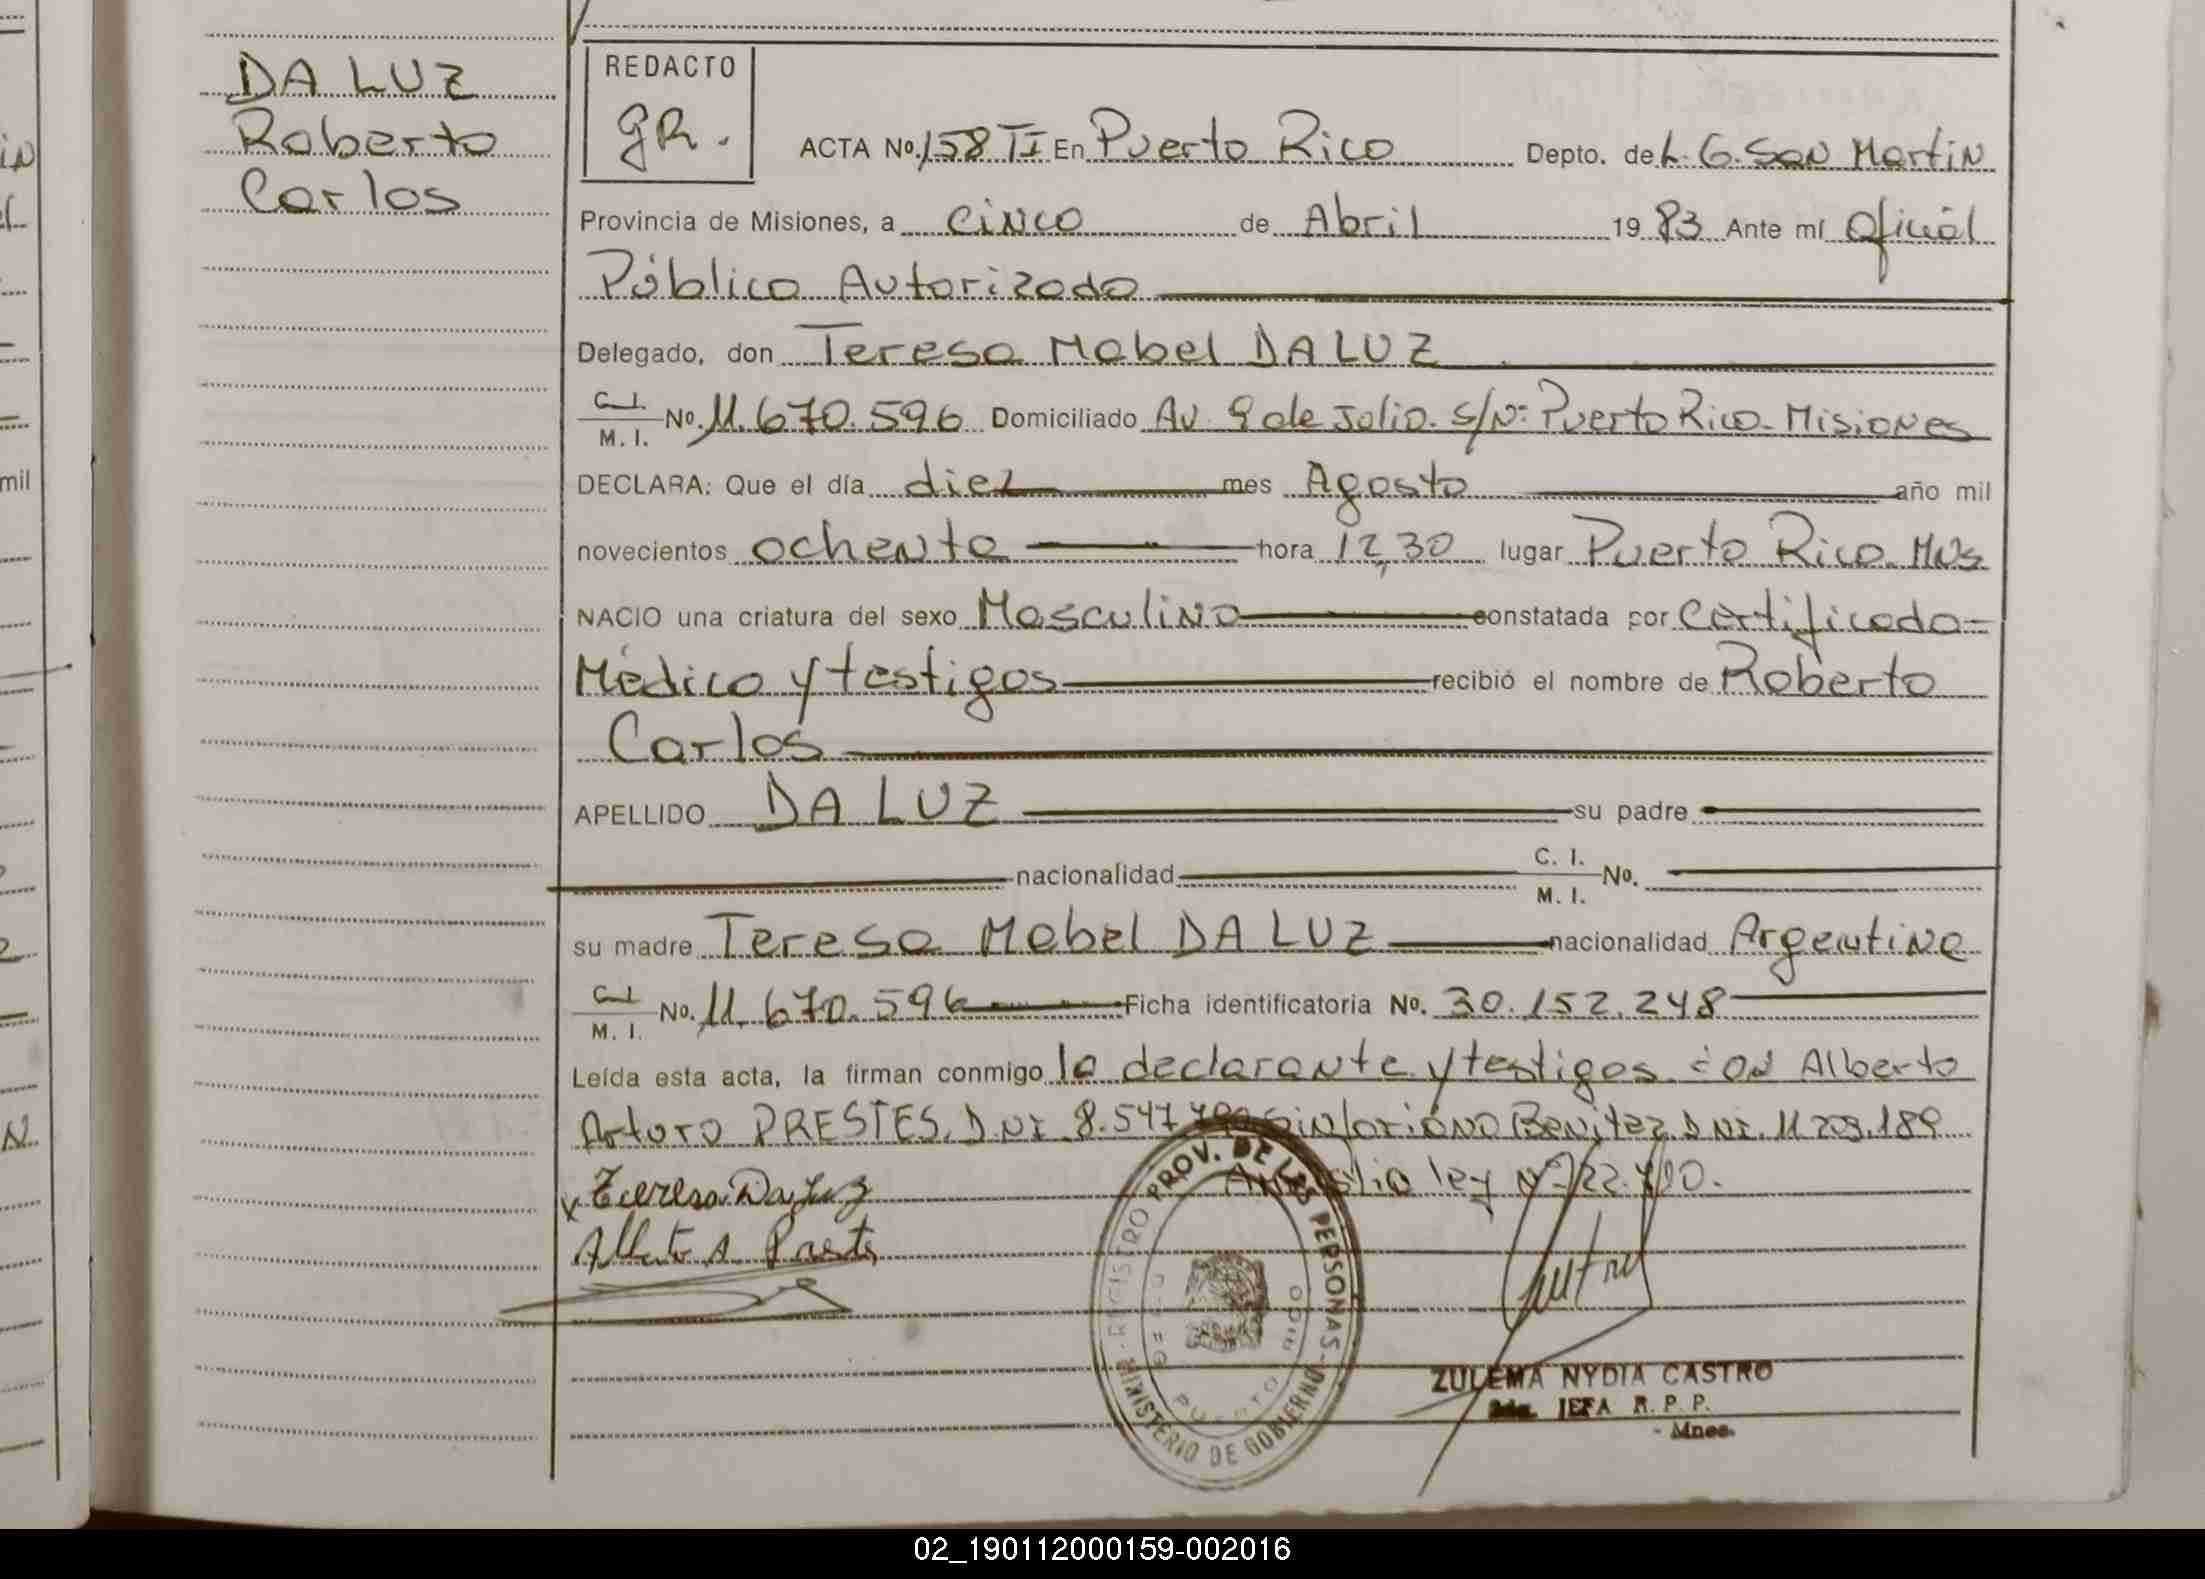 DA LUZ
Roberto
Carlos
REDACTO
gR.
ACTA No. 158 TI En Puerto Rico Depto. de L. G. San Martín
Provincia de Misiones, a cinco de Abril 19 83 Ante mí Oficial
Público Autorizado
Delegado, don Teresa Mabel DA LUZ
C. I.
M. I. No. 11.670.596 Domiciliado Av. 9 de Julio. S/Nº Puerto Rico. Misiones
DECLARA: Que el día diez mes Agosto año mil
novecientos ochenta hora 12,30 lugar Puerto Rico. Mns
NACIO una criatura del sexo Masculino constatada por certificado
Médico y testigos recibió el nombre de Roberto
Carlos
APELLIDO DA LUZ su padre
nacionalidad C. I.
M. I. No.
su madre Teresa Mabel DA LUZ nacionalidad Argentina
C. I.
M. I. No. 11.670.596 Ficha identificatoria No. 30.152.248
Leída esta acta, la firman conmigo la declarante y testigos don Alberto
Arturo PRESTES. D.NI 8.547. Sinforiano Benítez. D NI. 11 203.189
Amnistía ley Nº 22.
Teresa Da Luz
Alberto A Prestes
REGISTRO PROV. DE LAS PERSONAS - MINISTERIO DE GOBIERNO
PUERTO RICO
ZULEMA NYDIA CASTRO
JEFA R. P. P.
- Mnes.
mil
02_190112000159-002016